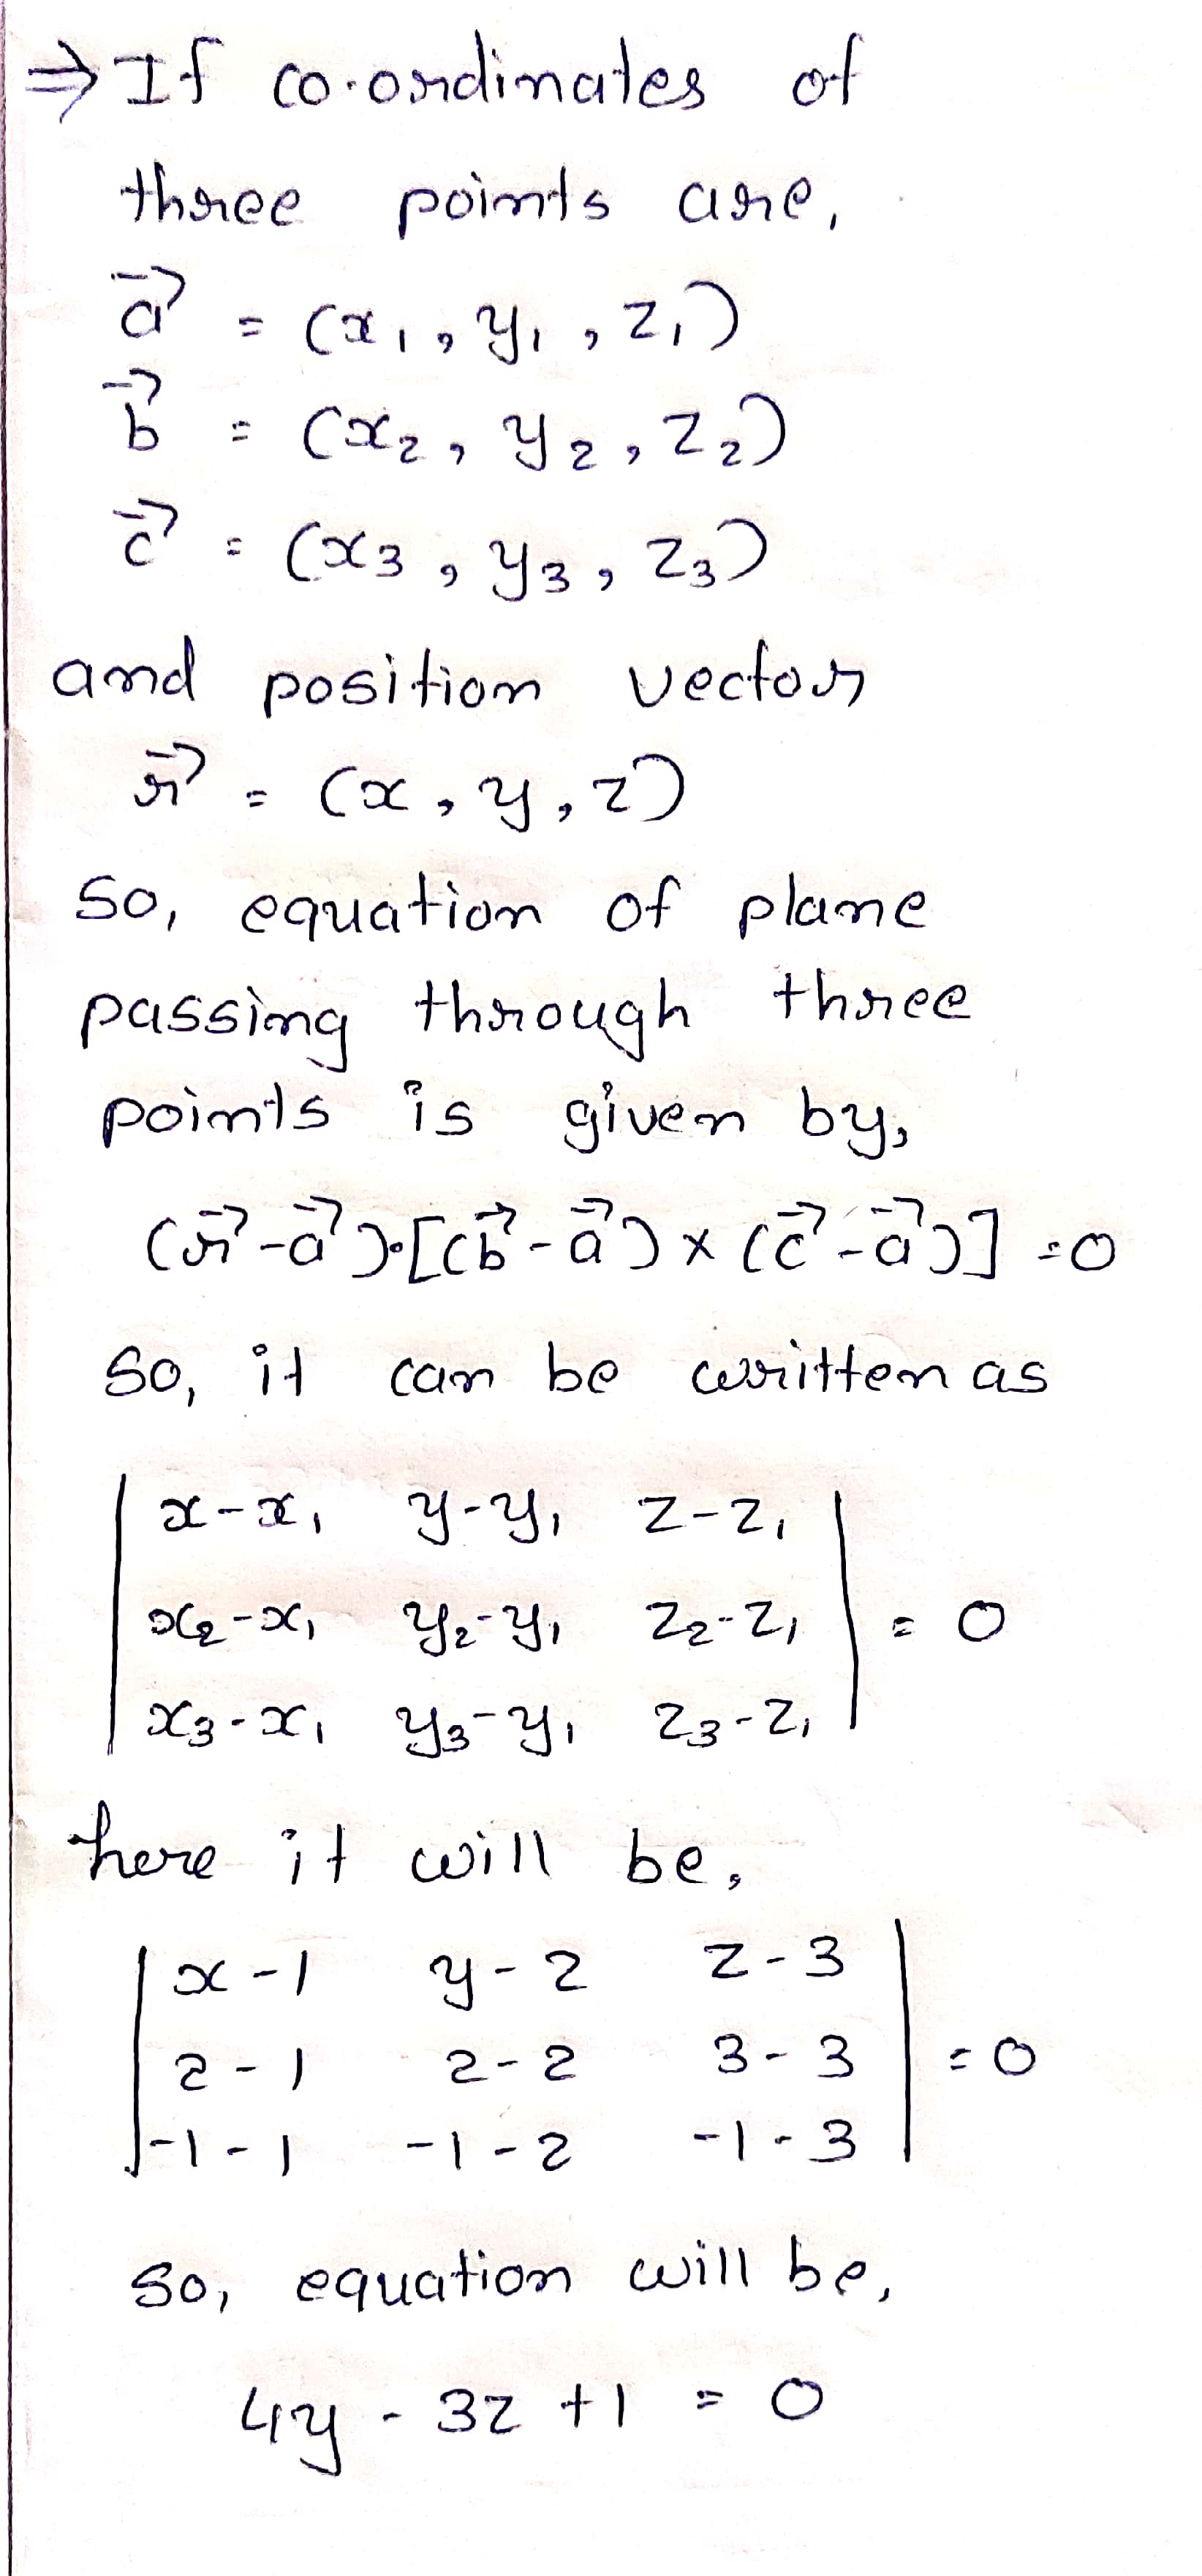 ⇒ If co-ordinates of
three points are,
a⃗ = (x₁, y₁, z₁)
b⃗ = (x₂, y₂, z₂)
c⃗ = (x₃, y₃, z₃)
and position vector
r⃗ = (x, y, z)
So, equation of plane
passing through three
points is given by,
(r⃗-a⃗)·[(b⃗-a⃗) × (c⃗-a⃗)] = 0
So, it can be written as
| x-x₁ y-y₁ z-z₁ |
| x₂-x₁ y₂-y₁ z₂-z₁ | = 0
| x₃-x₁ y₃-y₁ z₃-z₁ |
here it will be,
| x-1 y-2 z-3 |
| 2-1 2-2 3-3 | = 0
| -1-1 -1-2 -1-3 |
So, equation will be,
4y - 3z + 1 = 0